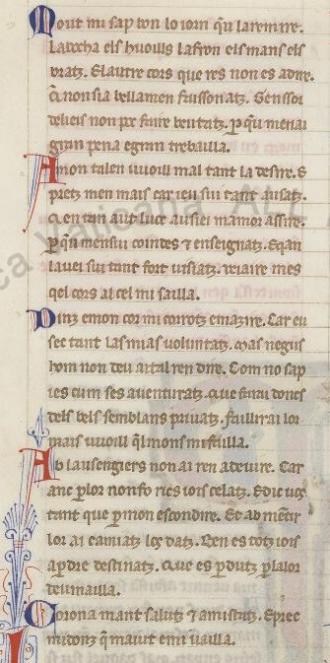 Mout mi sap bon lo iorn qu laremire.
La bocha els huoills el fron els mans els
bratz. E lautre cors que res non es adire.
Q non sia bellamen faissonatz. Genssor
de lieis non pot faire beutatz. p qu men ai
gran pena e gran trebailla.
A mon talen uuoill mal tant la desire. E
pretz men mais car ieu sui tant ausatz.
Q en tan aut luoc ausei mamor assire.
p qu mensui coindes ⁊ enseignatz. E qan
la uei sui tant fort uisatz. ueiaire mes
qel cors al cel mi sailla.
Dinz e mon cor mi corrotz e mazire. Car eu
sec tant las mias uoluntatz. Mas negus
hom non deu aital ren dire. Com no sap
ies cum ses auenturatz. Que farai doncs
dels bels semblans priuatz. faillirai lor
mais uuoill qel mons mi failla.
Ab lausengiers non ai ren a deuire. Car
anc p lor non fo rics iois celatz. E dic uos
tant que p mon escondire. Et ab mentir
lor ai camiatz los datz. Ben es totz iois
a pdre destinatz. Que es pdutz p la lor
deuinailla.
Corona mant salutz ⁊ amistatz. E prec
midonz qe maiut e mi uailla.